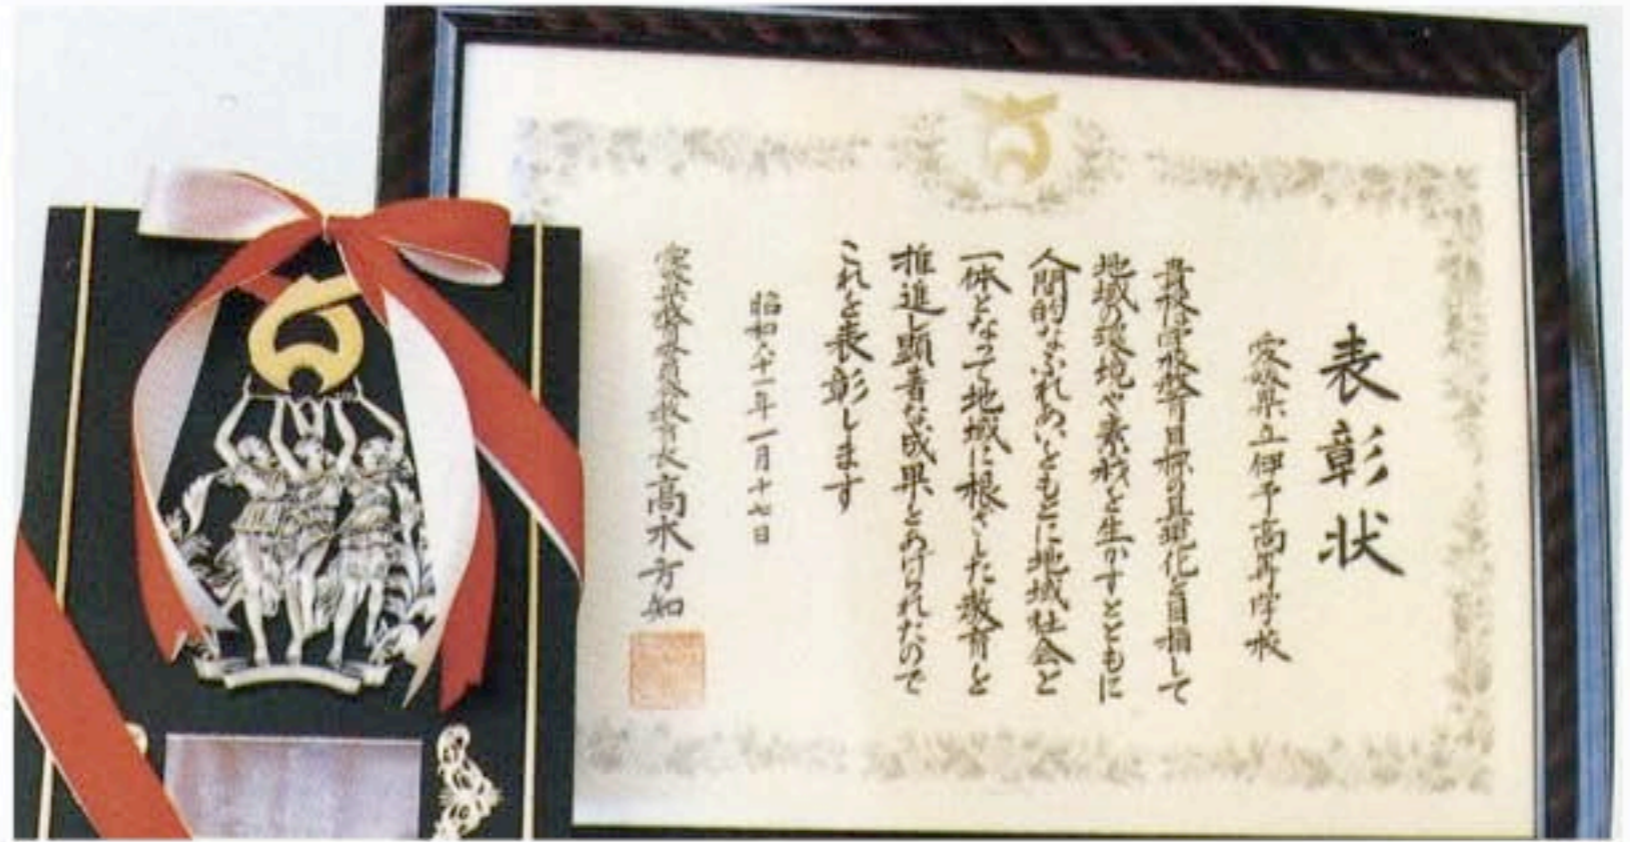 表彰状
愛媛県立伊予高等学校
貴校は学校教育目標の具現化を目指して
地域の環境や素材を生かすとともに
人間的なふれあいをもとに地域社会と
一体となって地域に根ざした教育を
推進し顕著な成果をあげられたので
これを表彰します
昭和六十一年一月十七日
愛媛県教育委員会教育長 高水方知